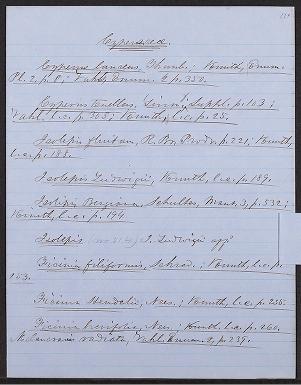 Cyperaceæ.
Cyperus lanceus, Thunb.; Kunth, Enum.
Pl. 2, p. 8; Vahl, Enum. 2 p. 350.
Cyperus tenellus, Linn. f. Suppl. p. 103;
Vahl, l.c. p. 305; Kunth, l.c. p. 25.
Isolepis fluitans, R. Br. Prodr. p. 221; Kunth,
l.c. p. 188.
Isolepis Ludwigii, Kunth, l.c. p. 189.
Isolepis Bergiana, Schultes, Mant. 2, p. 532;
Kunth, l.c. p. 194.
Isolepis I. Ludwigii aff.
Ficinia filiformis, Schrad.; Kunth, l.c. p.
253.
Ficinia Nees.; Kunth, l.c. p. 255.
Ficinia brevifolia, Nees.; Kunth, l.c. p. 260.
radiata, Vahl. Enum. 2, p. 239.